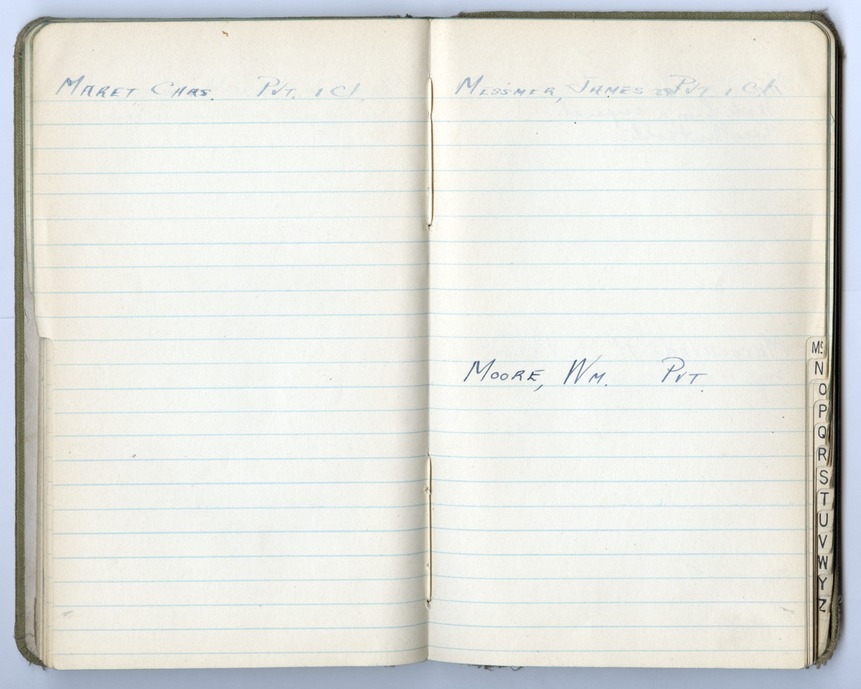 MARET CHAS. PVT. 1 Cl.
MESSMER, JAMES PVT 1 Cl
MOORE, WM. PVT.
Mc
N
O
P
Q
R
S
T
U
V
W
Y
Z